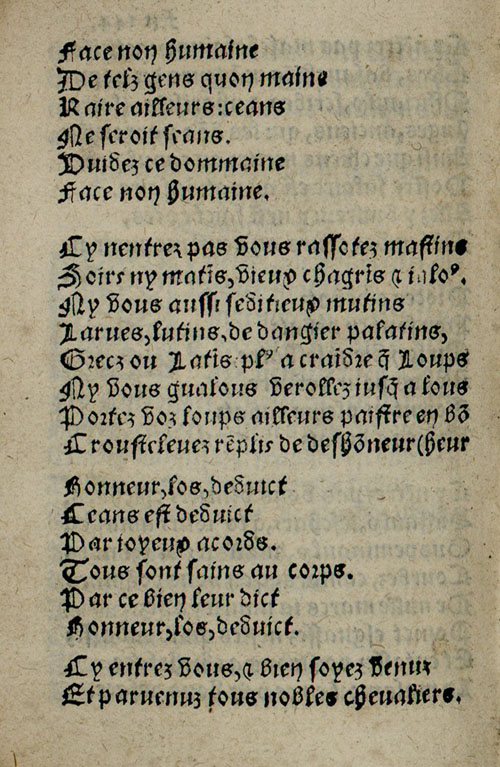 Face non humaine
De telz gens quon maine
Raire ailleurs: ceans
Ne seroit seans.
Vuidez ce dommaine
Face non humaine.
Cy nentrez pas vous rassotez mastins
Soirs ny matĩs, vieux chagrĩs ⁊ ialoꝰ.
Ny vous aussi seditieux mutins
Larues, lutins, de dangier palatins,
Grecz ou Latĩs plꝰ a craĩdre q̃ Loups
Ny vous gualous verollez iusq̃ a lous
Portez voz loups ailleurs paistre en bõ
Croustelevez rẽplis de deshõneur (heur
Honneur, los, deduict
Ceans est deduict
Par ioyeux acords.
Tous sont sains au corps.
Par ce bien leur dict
Honneur, los, deduict.
Cy entrez vous, ⁊ bien soyez venuz
Et paruenuz tous nobles chevaliers.